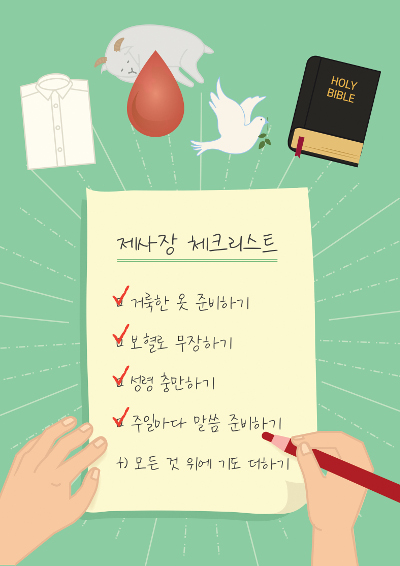 HOLY
BIBLE
제사장 체크리스트
거룩한 옷 준비하기
보혈로 무장하기
성령 충만하기
주일마다 말씀 준비하기
+) 모든 것 위에 기도 더하기